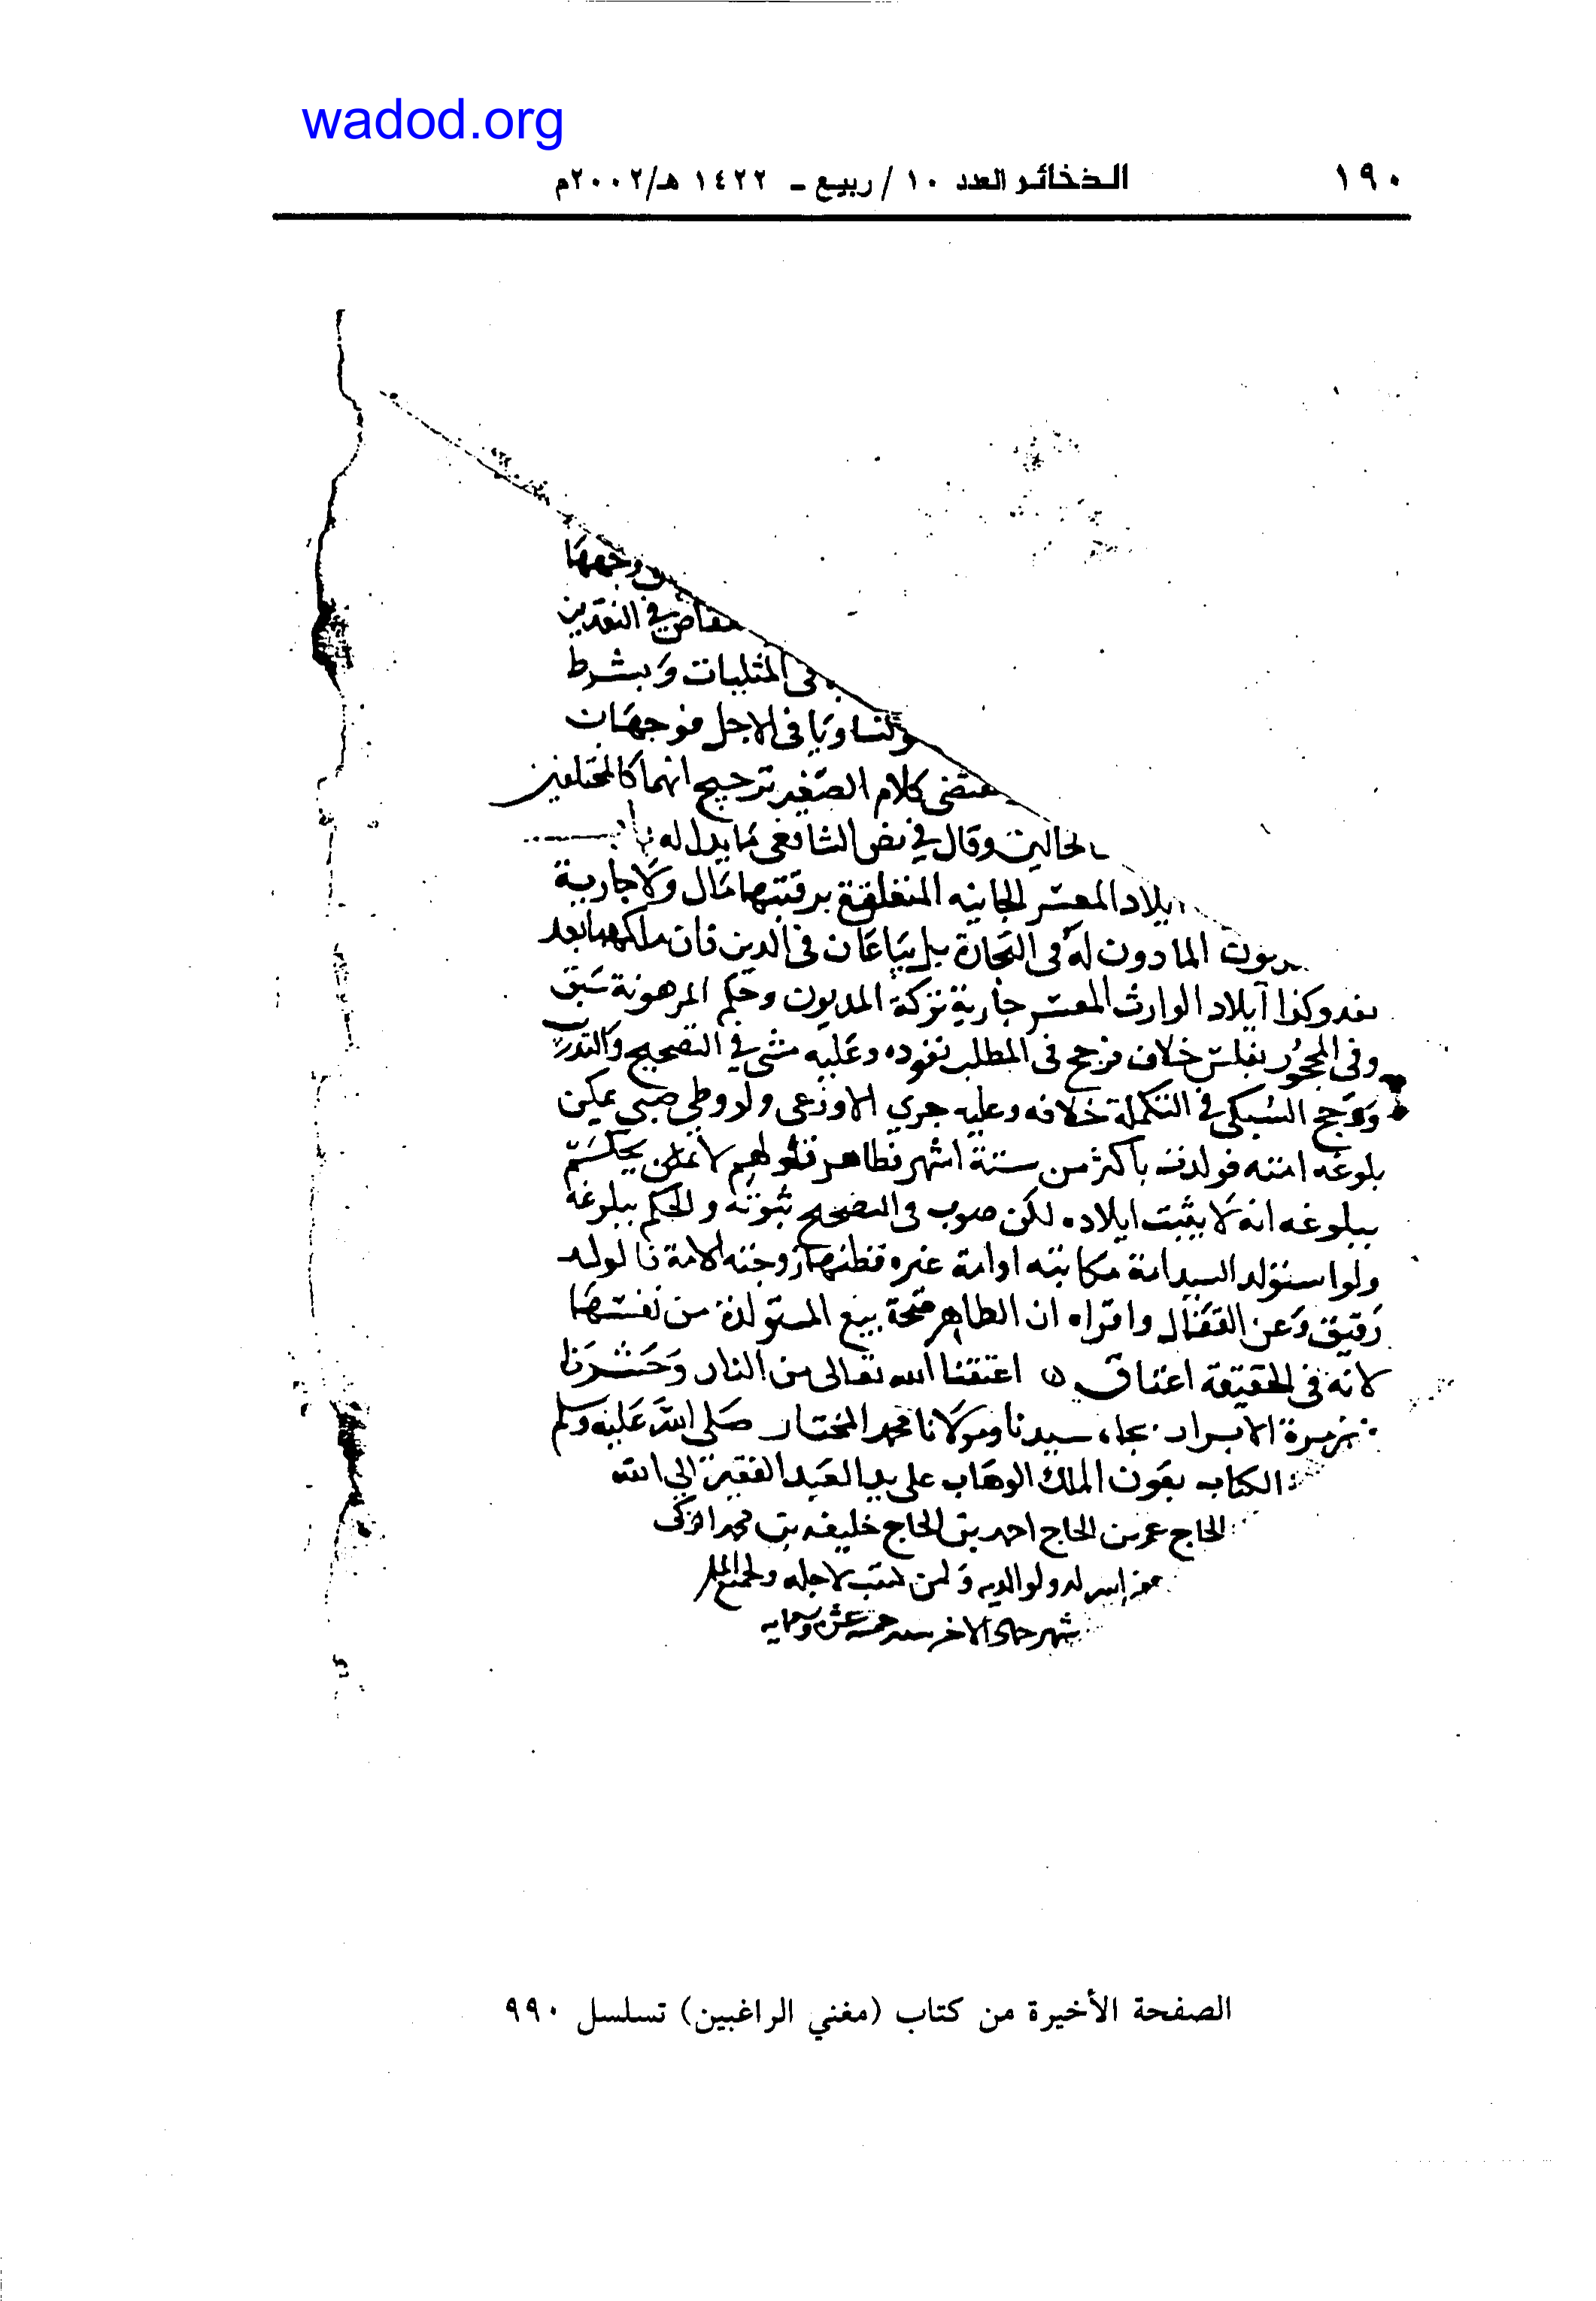 wadod.org
١٩٠ الـذخـائـر العدد ١٠ / ربيـع - ١٤٢٢ هـ/٢٠٠٢م
وجهها
في النقدين
في المثليات وبشرط
وتساويا في الاجل فوجهان
كلام الصغير ترجيح انهما كالمختلفين
الحالين وقال في نص الشافعي ما يدل له
ايلاد المعسر الجانيه المتعلقة برقبتها مال ولا جارية
المادون له في التجارة بل يباعان في الدين فان ملكهما بعد
نفد وكذا ايلاد الوارث المعسر جارية تركة المديون وحكم المرهونة سبق
وفي المحجور بفلس خلاف فرجح في المطلب نفوده وعليه مشى في التصحيح والتدريب
ورجح السبكي في التكملة خلافه وعليه جري الاوزعى ولو وطي صبي يمكن
بلوغه امته فولدت باكثر من ستة اشهر فظاهر لا يحكم
ببلوغه انه لا يثبت ايلاده لكن صوب في التصحيح ثبوته والحكم ببلوغه
ولو استولد السيد امة مكاتبته او امة غيره فظنها زوجته الامة فالولد
رقيق وعن القفال واقراه ان الظاهر صحة بيع المستولدة من نفسها
لانه في الحقيقة اعتاق ۞ اعتقنا الله تعالى من النار وحشرنا
زمرة الابرار بجاه سيدنا ومولانا محمد المختار صلى الله عليه وسلم
الكتاب بعون الملك الوهاب على يد العبد الفقير الى الله
الحاج عمر بن الحاج احمد بن الحاج خليفه بن محمد
له ولوالديه ولمن كتب لاجله ولجميع
شهر جمادى الاخر سنه خمسه عشر
الصفحة الأخيرة من كتاب (مغني الراغبين) تسلسل ٩٩٠